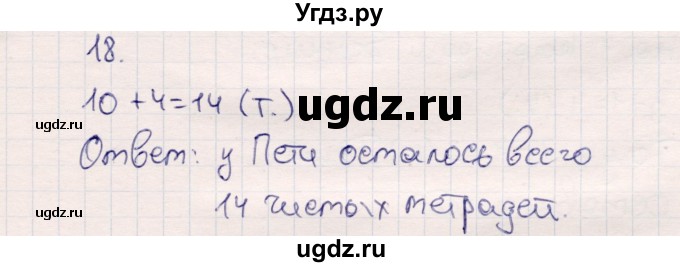 Угдз.ру
18.
ugdz.ru ugdz.ru
10 + 4 = 14 (т.)
ugdz.ru
Ответ: у Пети осталось всего
14 чистых тетрадей.
ugdz.ru ugdz.ru
ugdz.ru